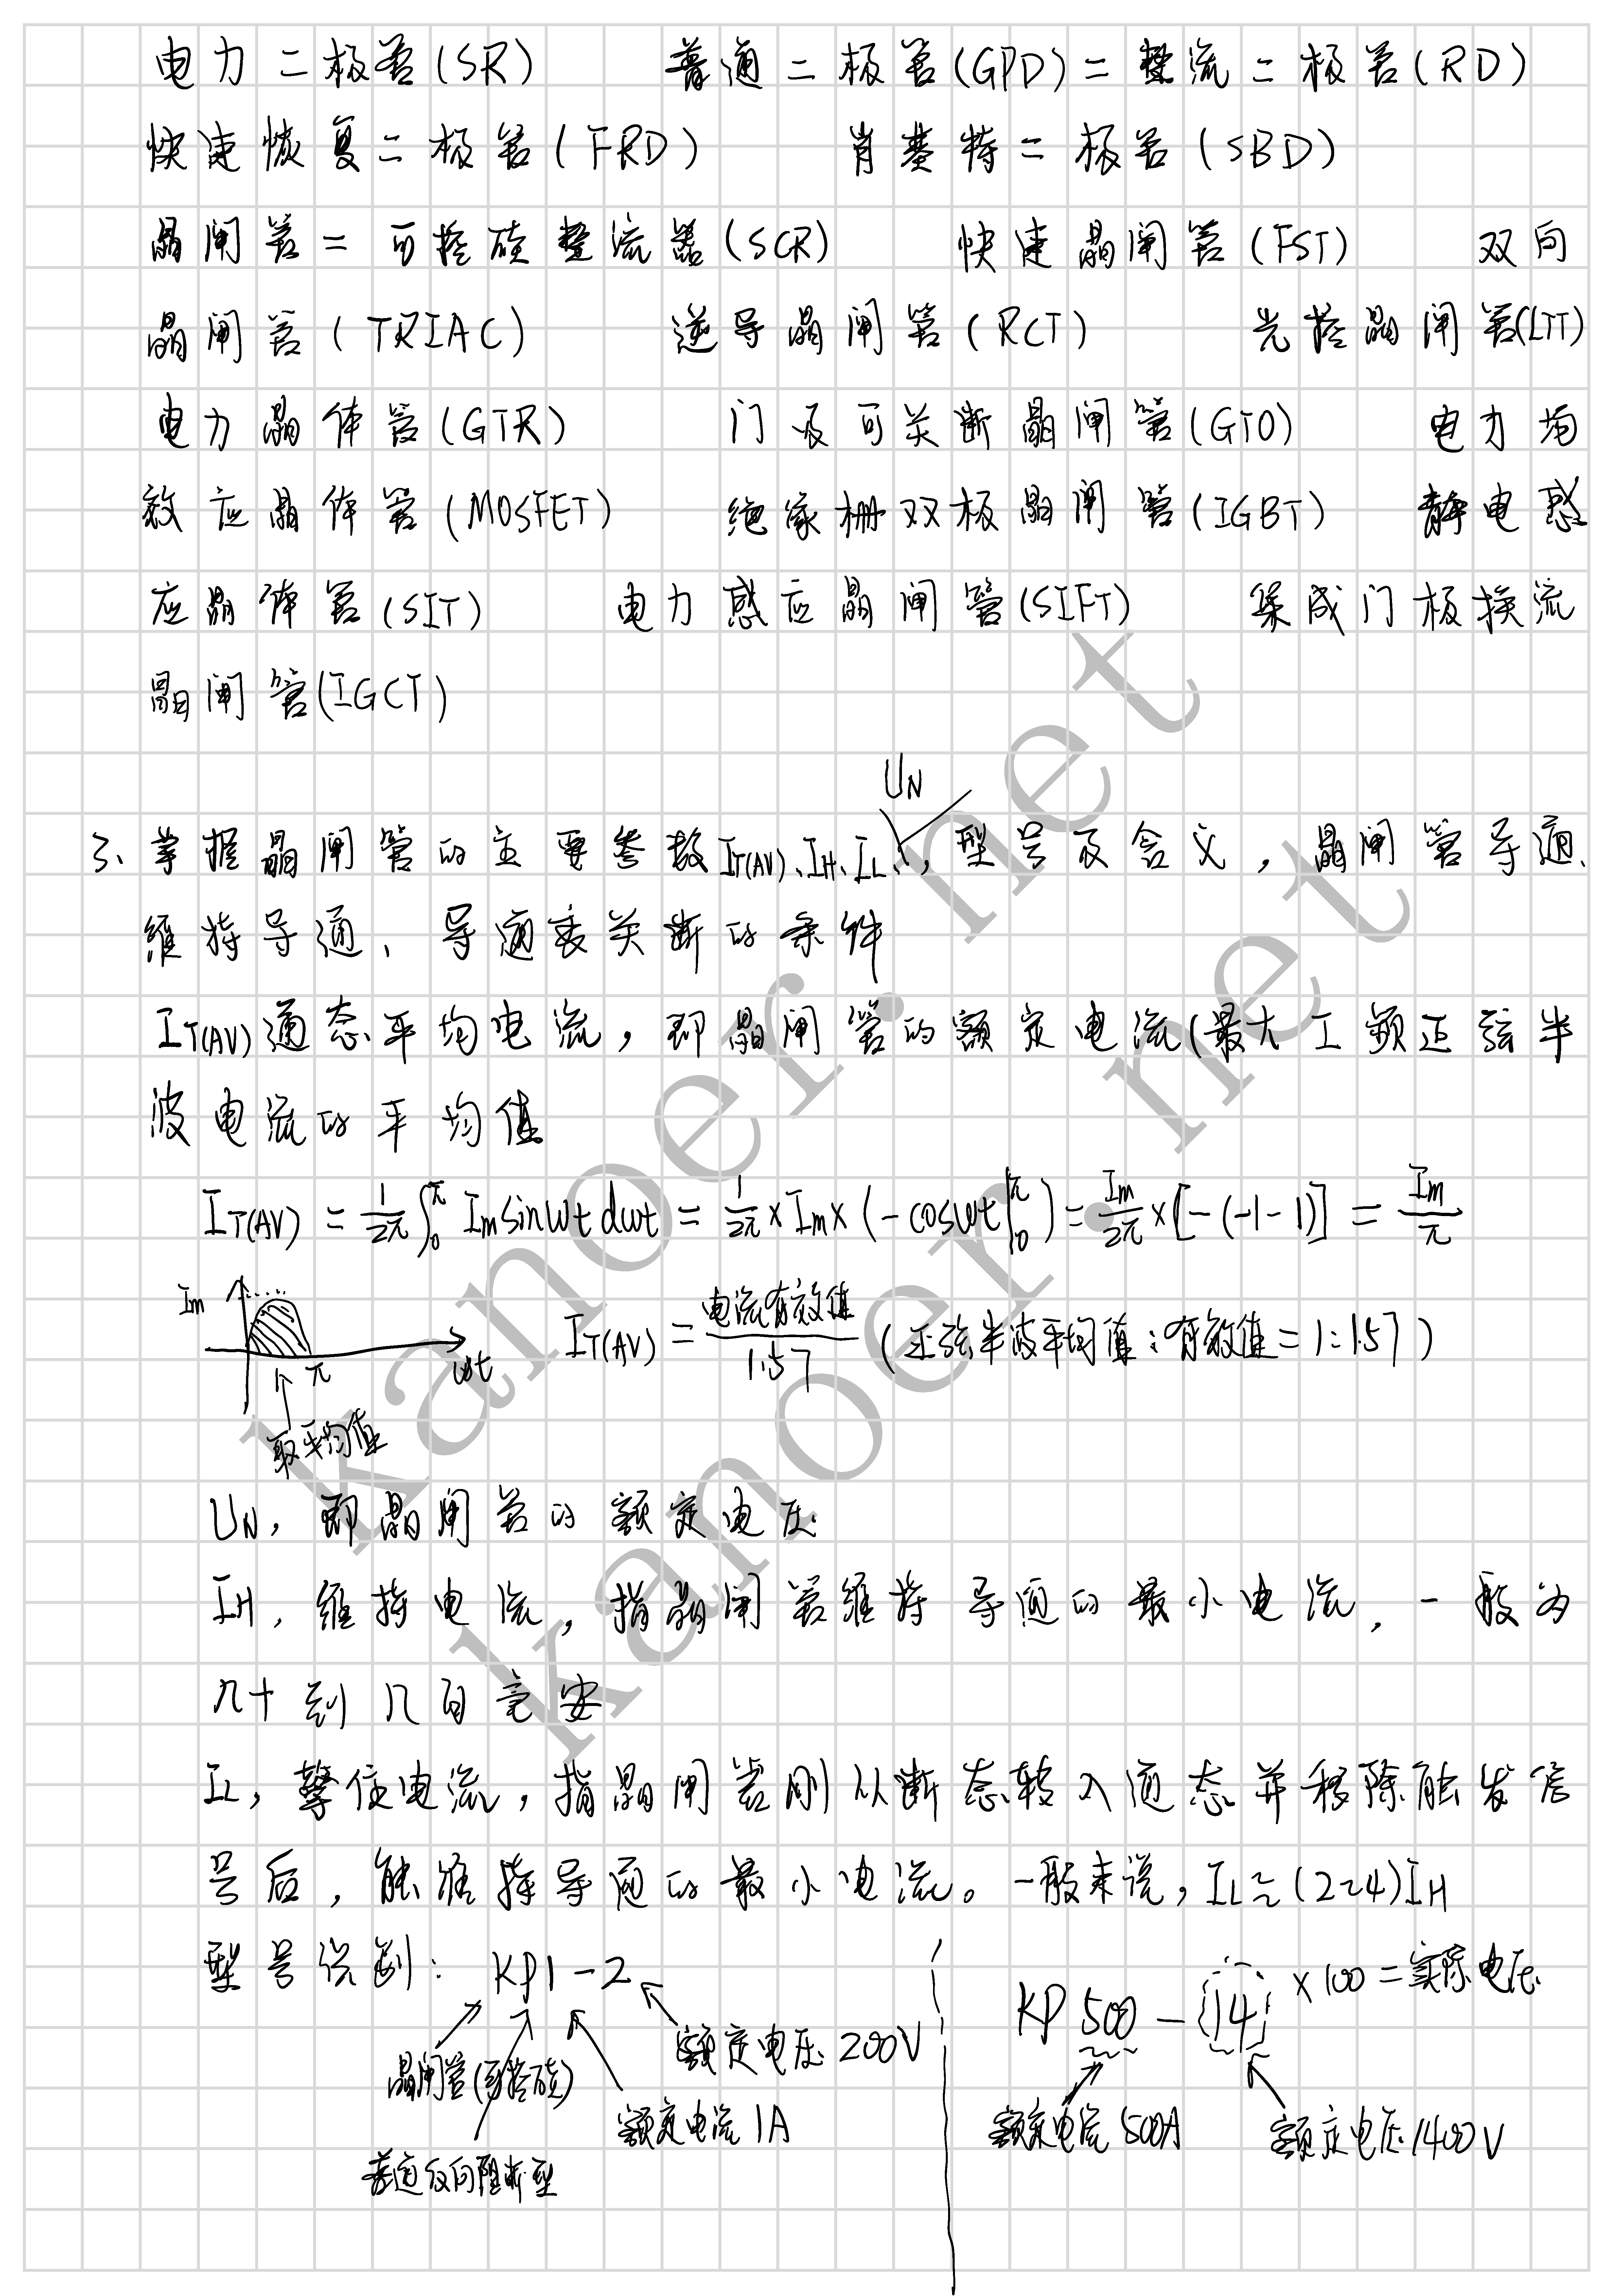 电力二极管(SR) 普通二极管(GPD)=整流二极管(RD)
快速恢复二极管(FRD) 肖基特二极管(SBD)
晶闸管=可控硅整流器(SCR) 快速晶闸管(FST) 双向
晶闸管(TRIAC) 逆导晶闸管(RCT) 光控晶闸管(LTT)
电力晶体管(GTR) 门极可关断晶闸管(GTO) 电力场
效应晶体管(MOSFET) 绝缘栅双极晶闸管(IGBT) 静电感
应晶体管(SIT) 电力感应晶闸管(SIFT) 集成门极换流
晶闸管(IGCT)
UN
3、掌握晶闸管的主要参数IT(AV)、IH、IL、,型号及含义,晶闸管导通、
维持导通、导通变关断的条件
IT(AV)通态平均电流,即晶闸管的额定电流(最大工频正弦半
波电流的平均值
IT(AV) = 1/2π ∫0^π Im sinωt dωt = 1/2π × Im × (-cosωt|0^π) = Im/2π × [-(-1-1)] = Im/π
Im
π ωt
取平均值
IT(AV) = 电流有效值/1.57 (正弦半波平均值:有效值=1:1.57)
UN,即晶闸管的额定电压
IH,维持电流,指晶闸管维持导通的最小电流,一般为
几十到几百毫安
IL,擎住电流,指晶闸管刚从断态转入通态并移除触发信
号后,能维持导通的最小电流。一般来说,IL≈(2~4)IH
型号识别: KP1-2
额定电压200V
晶闸管(可控硅)
额定电流1A
普通反向阻断型
KP500-14 ×100=实际电压
额定电流500A
额定电压1400V
kanoer.net
kanoer.net